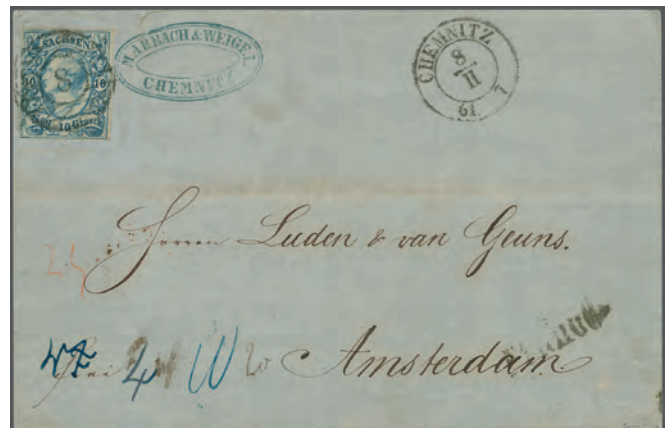 SACHSEN
10 10
8
Neu 10 Grosch
MARBACH & WEIGEL
CHEMNITZ
CHEMNITZ
8
II
61
7
Herren Luden & van Geuns.
frei
W
Amsterdam